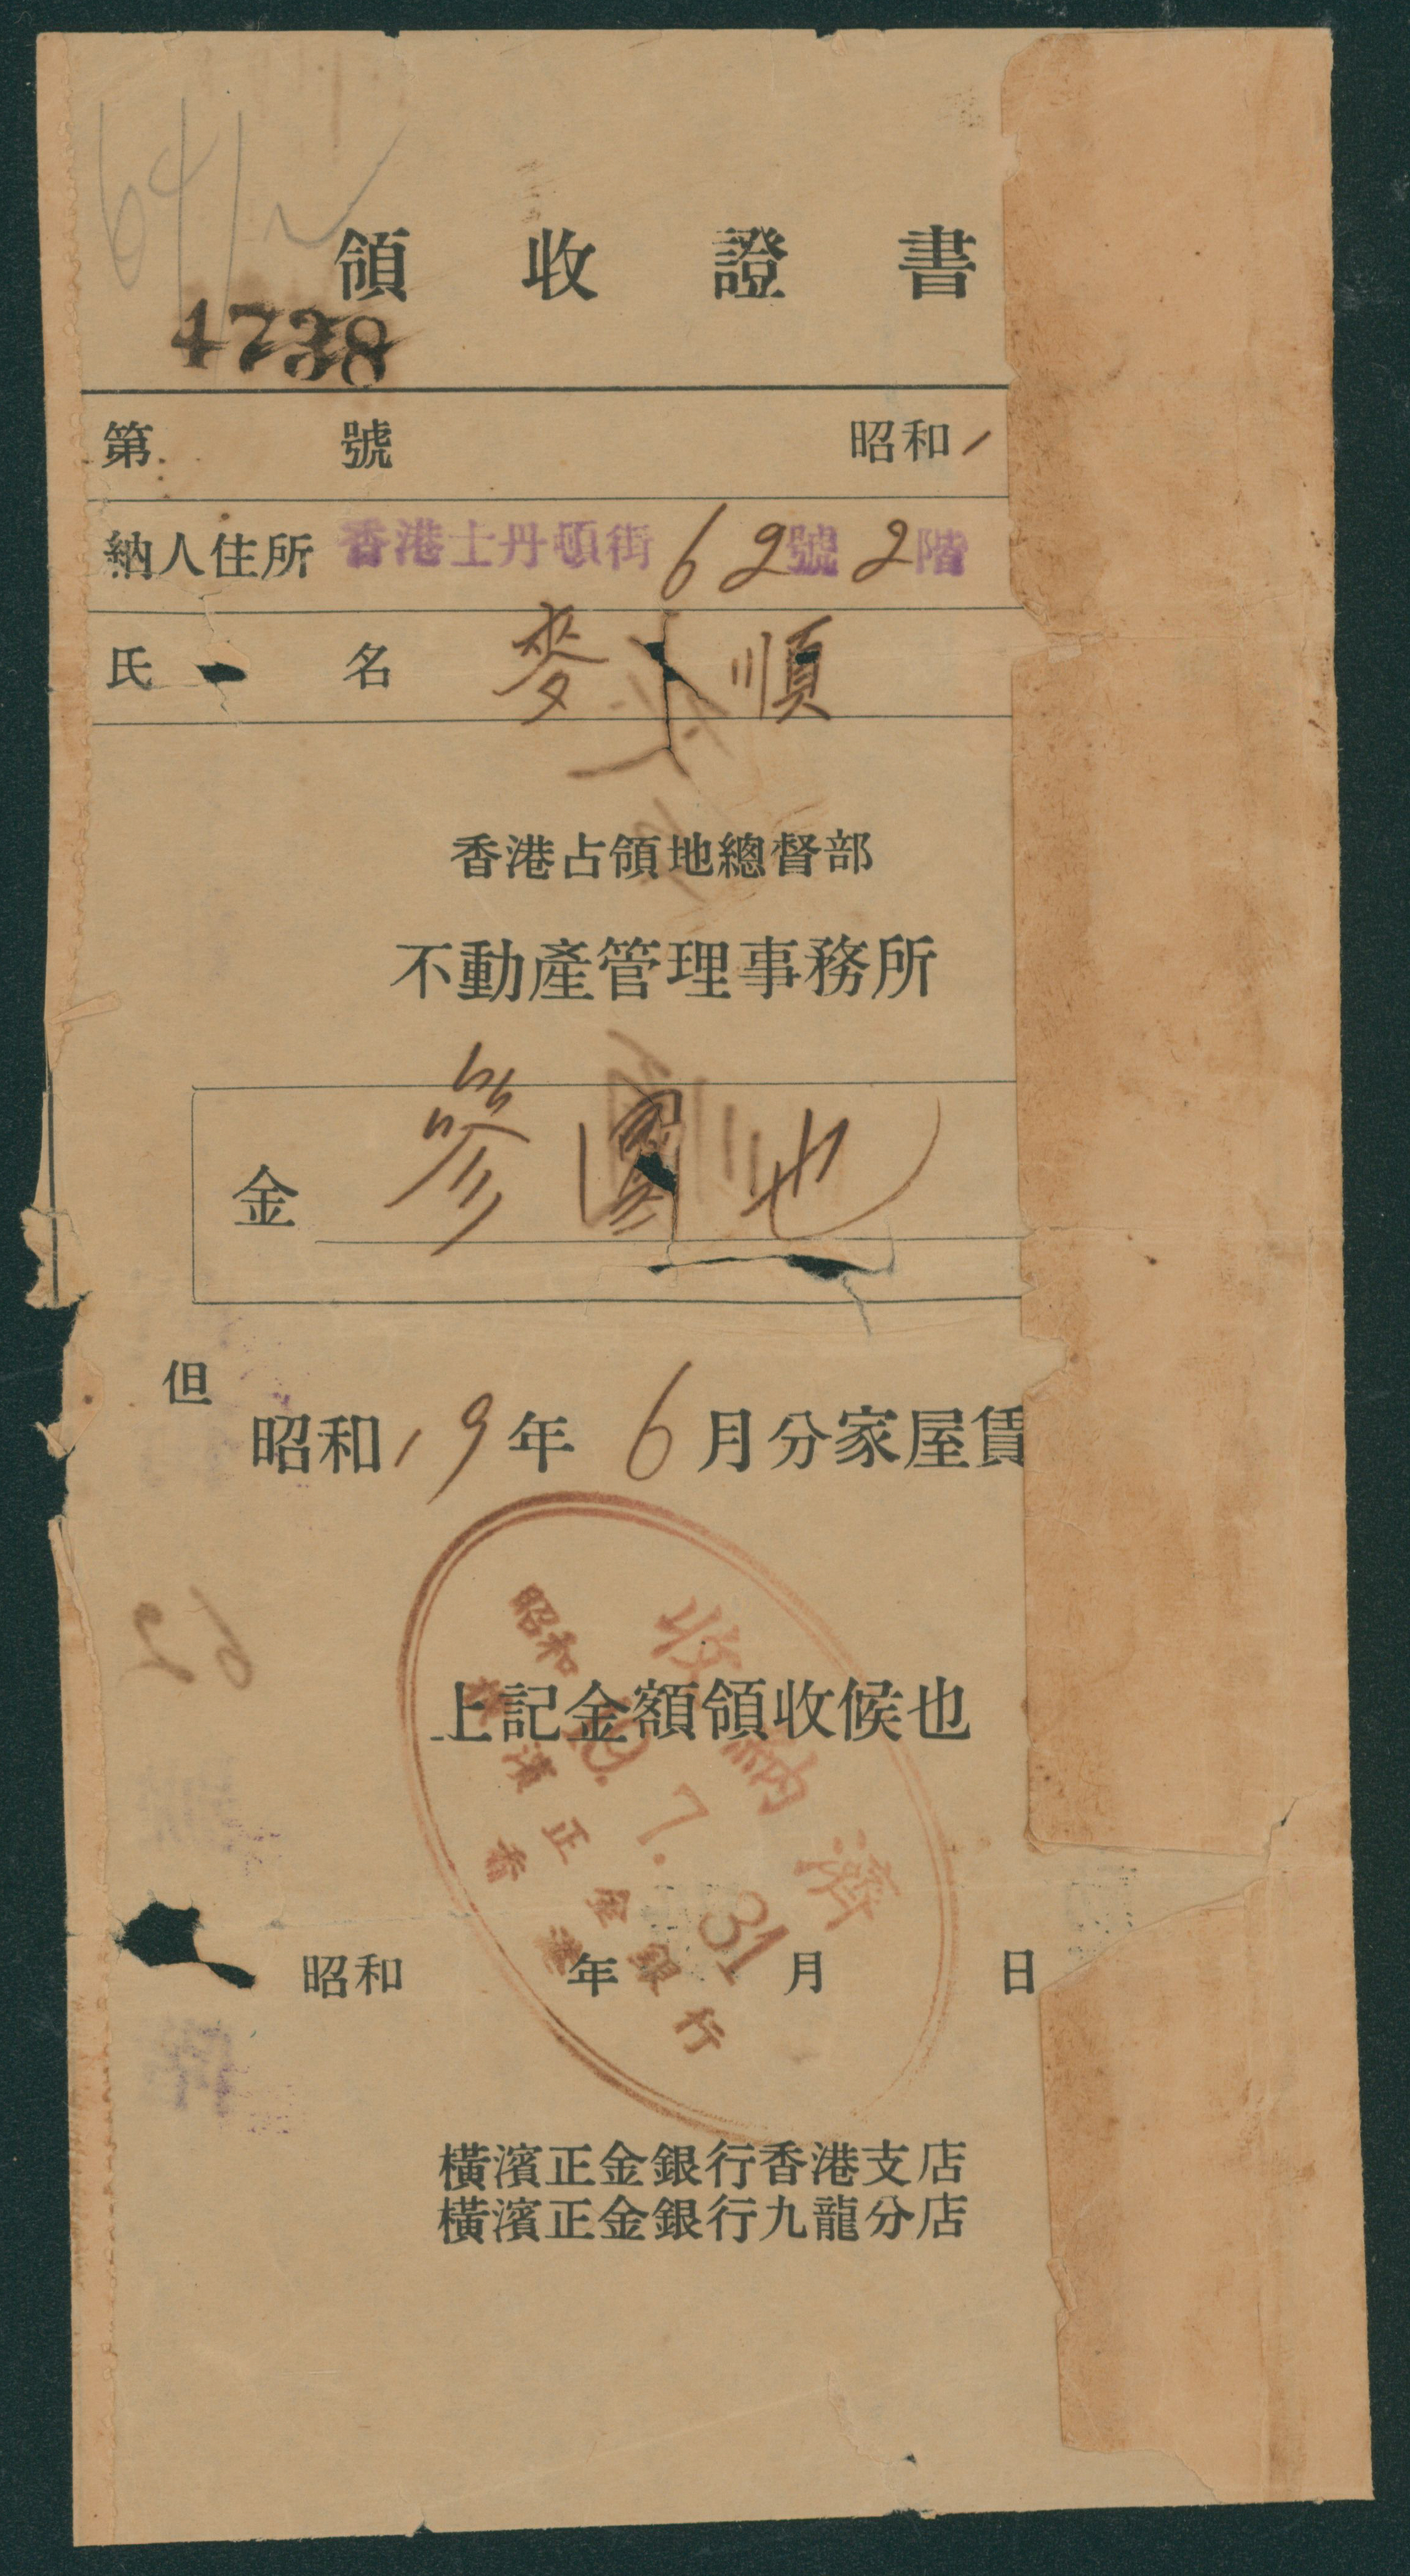 領收證書
4738
第 號 昭和1
納人住所 香港士丹頓街 62號 2階
氏名 麥 順
香港占領地總督部
不動產管理事務所
金 參圓也
但
昭和19年 6月分家屋賃
上記金額領收候也
收納濟
昭和 19. 7. 31
橫濱正金銀行
香港
昭和 年 月 日
橫濱正金銀行香港支店
橫濱正金銀行九龍分店